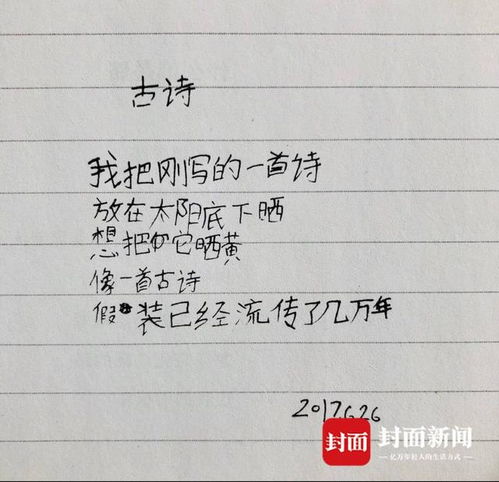 古诗
我把刚写的一首诗
放在太阳底下晒
想把它晒黄
像一首古诗
假装已经流传了几万年
2017626
封面 封面新闻
亿万年轻人的生活方式